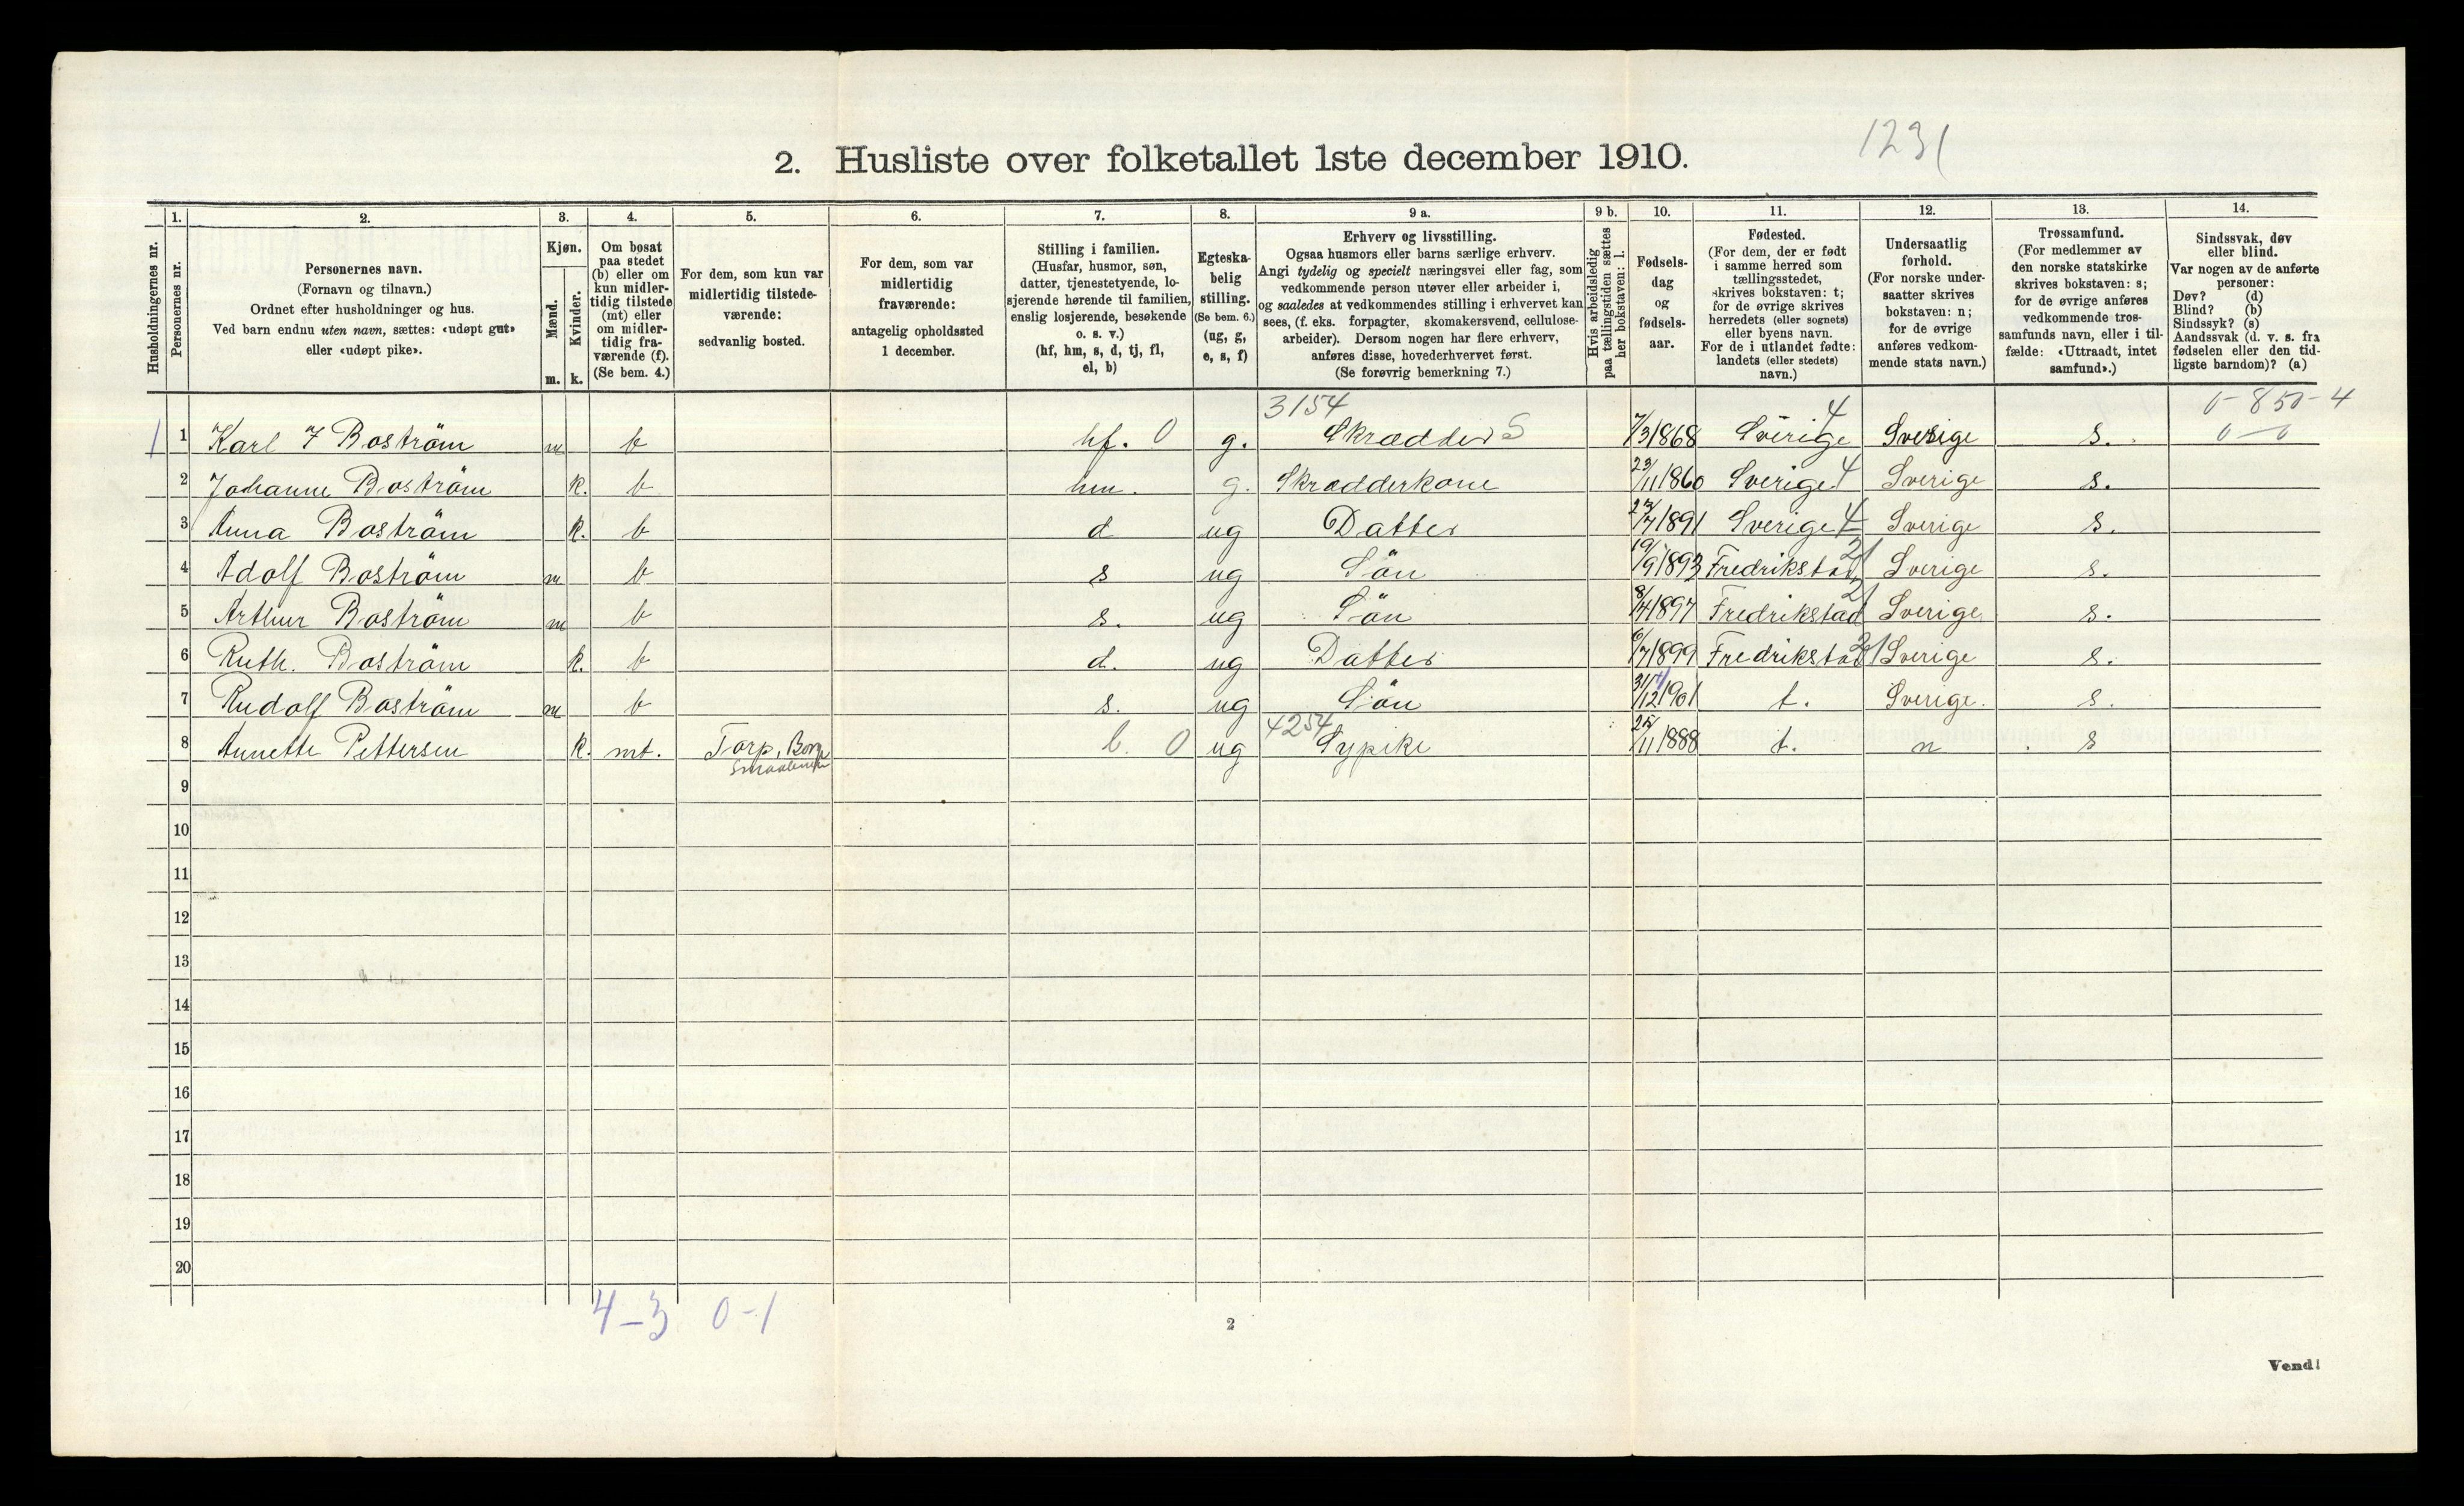 1231
2. Husliste over folketallet 1ste december 1910.
Husholdningernes nr.
1.
Personernes nr.
2.
Personernes navn.
(Fornavn og tilnavn.)
Ordnet efter husholdninger og hus.
Ved barn endnu uten navn, sættes: «udøpt gut»
eller «udøpt pike».
3.
Kjøn.
Mænd.
Kvinder.
m. k.
4.
Om bosat
paa stedet
(b) eller om
kun midler-
tidig tilstede
(mt) eller
om midler-
tidig fra-
værende (f).
(Se bem. 4.)
5.
For dem, som kun var
midlertidig tilstede-
værende:
sedvanlig bosted.
6.
For dem, som var
midlertidig
fraværende:
antagelig opholdssted
1 december.
7.
Stilling i familien.
(Husfar, husmor, søn,
datter, tjenestetyende, lo-
sjerende hørende til familien,
enslig losjerende, besøkende
o. s. v.)
(hf, hm, s, d, tj, fl,
el, b)
8.
Egteska-
belig
stilling.
(Se bem. 6.)
(ug, g,
e, s, f)
9 a.
Erhverv og livsstilling.
Ogsaa husmors eller barns særlige erhverv.
Angi tydelig og specielt næringsvei eller fag, som
vedkommende person utøver eller arbeider i,
og saaledes at vedkommendes stilling i erhvervet kan
sees, (f. eks. forpagter, skomakersvend, cellulose-
arbeider). Dersom nogen har flere erhverv,
anføres disse, hovederhvervet først.
(Se forøvrig bemerkning 7.)
9 b.
Hvis arbeidsledig
paa tællingstiden sættes
her bokstaven: l.
10.
Fødsels-
dag
og
fødsels-
aar.
11.
Fødested.
(For dem, der er født
i samme herred som
tællingsstedet,
skrives bokstaven: t;
for de øvrige skrives
herredets (eller sognets)
eller byens navn.
For de i utlandet fødte:
landets (eller stedets)
navn.)
12.
Undersaatlig
forhold.
(For norske under-
saatter skrives
bokstaven: n;
for de øvrige
anføres vedkom-
mende stats navn.)
13.
Trossamfund.
(For medlemmer av
den norske statskirke
skrives bokstaven: s;
for de øvrige anføres
vedkommende tros-
samfunds navn, eller i til-
fælde: «Uttraadt, intet
samfund».)
14.
Sindssvak, døv
eller blind.
Var nogen av de anførte
personer:
Døv? (d)
Blind? (b)
Sindssyk? (s)
Aandssvak (d. v. s. fra
fødselen eller den tid-
ligste barndom)? (a)
3154 4 0-850-4
1 1 Karl F Boström m b hf. 0 g. Skrædder S 7/3 1868 Sverige Sverige s. 0-0
2 Johanne Boström k. b hm. g. Skrædderkone 23/11 1860 Sverige 4 Sverige s.
3 Anna Boström k. b d ug Datter 27/7 1891 Sverige 4 Sverige s.
4 Adolf Boström m b s ug Sön 19/9 1893 Fredrikstad 21 Sverige s.
5 Arthur Boström m b s. ug Sön 8/4 1897 Fredrikstad 21 Sverige s.
6 Ruth. Boström k. b d. ug Datter 6/7 1899 Fredrikstad 21 Sverige s.
7 Rudolf Boström m b s. ug Sön 31/12 1901 t. Sverige. s.
8 Annette Pettersen k. mt. Torp, Borge b. 0 ug 4254 Sypike 25/11 1888 t. n s
Smaalenene
9
10
11
12
13
14
15
16
17
18
19
20
4-3 0-1
2
Vend!